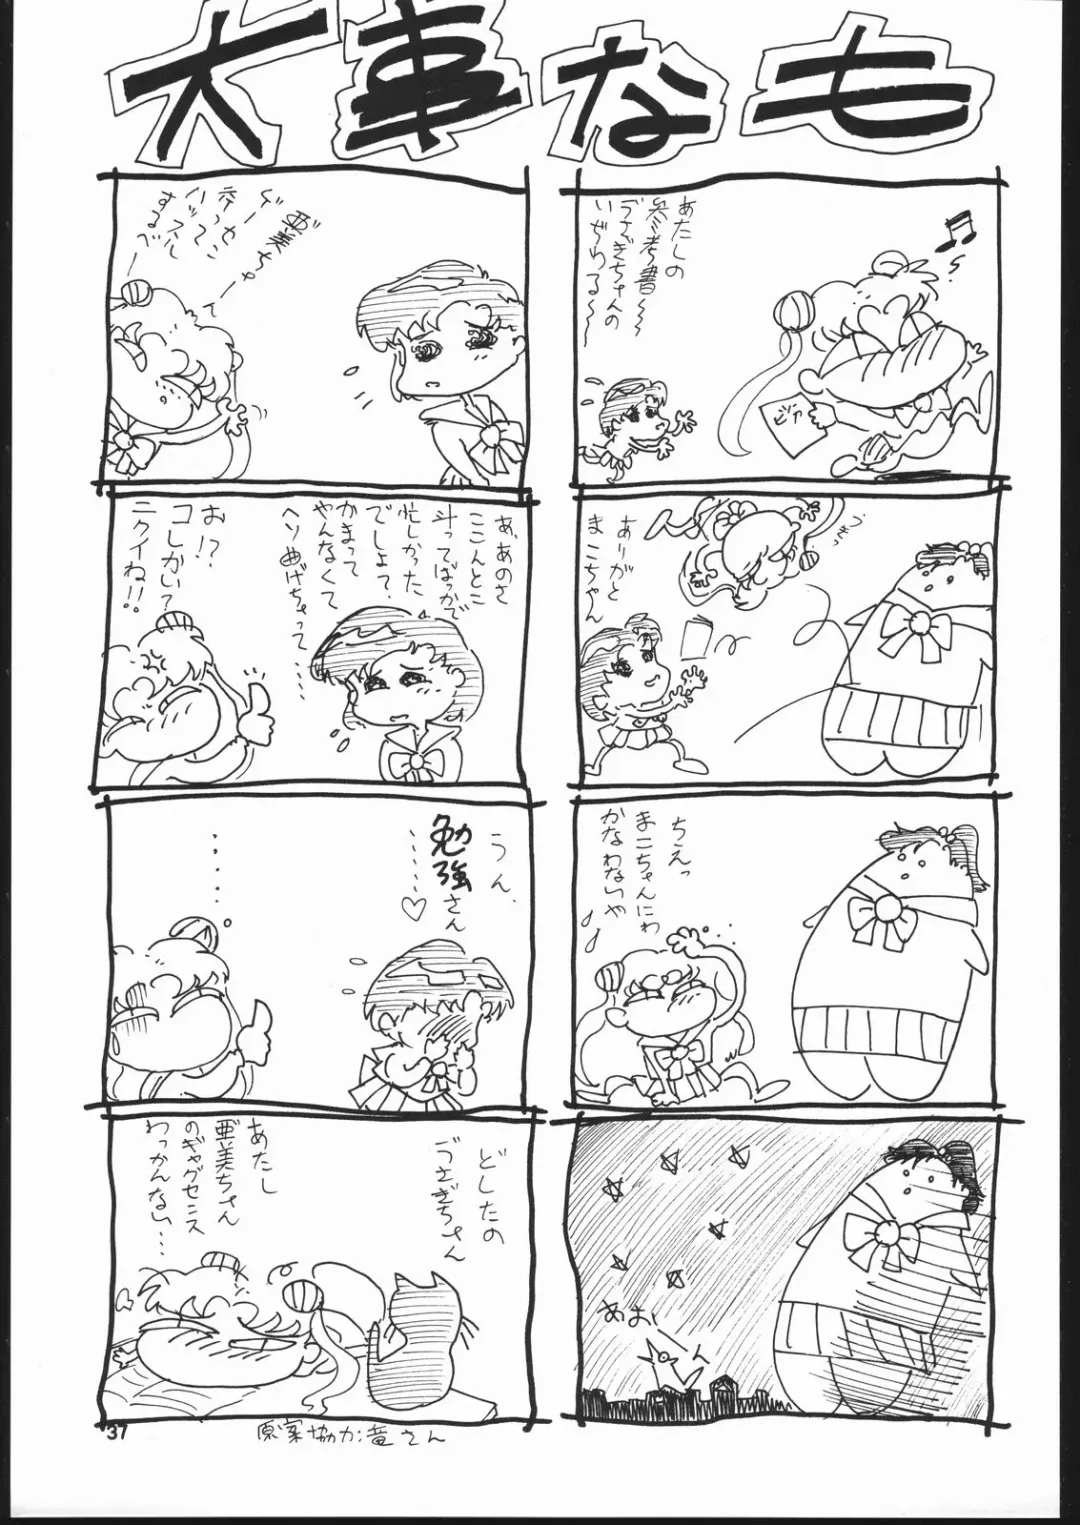 大事なも
あたしの
参考書〜〜
うさぎちゃんの
いぢわる〜〜
ピア
ありがと
まこちゃん
ちえっ
まこちゃんにわ
かなわないや
あおー
亜美ちゃーん
でーと
ハッスル
するべー
あ、あのさ
ここんとこ
斗ってばっかで
忙しかった
でしょて、
かまって
やんなくて
ヘソ曲げちゃって……
お!?
コレかい?
ニクイね!!
うん、
勉強さん
……♡
……
どしたの
うさぎちゃん
あたし
亜美ちゃん
のギャグセンス
わっかんない…
37
原案協力:竜さん